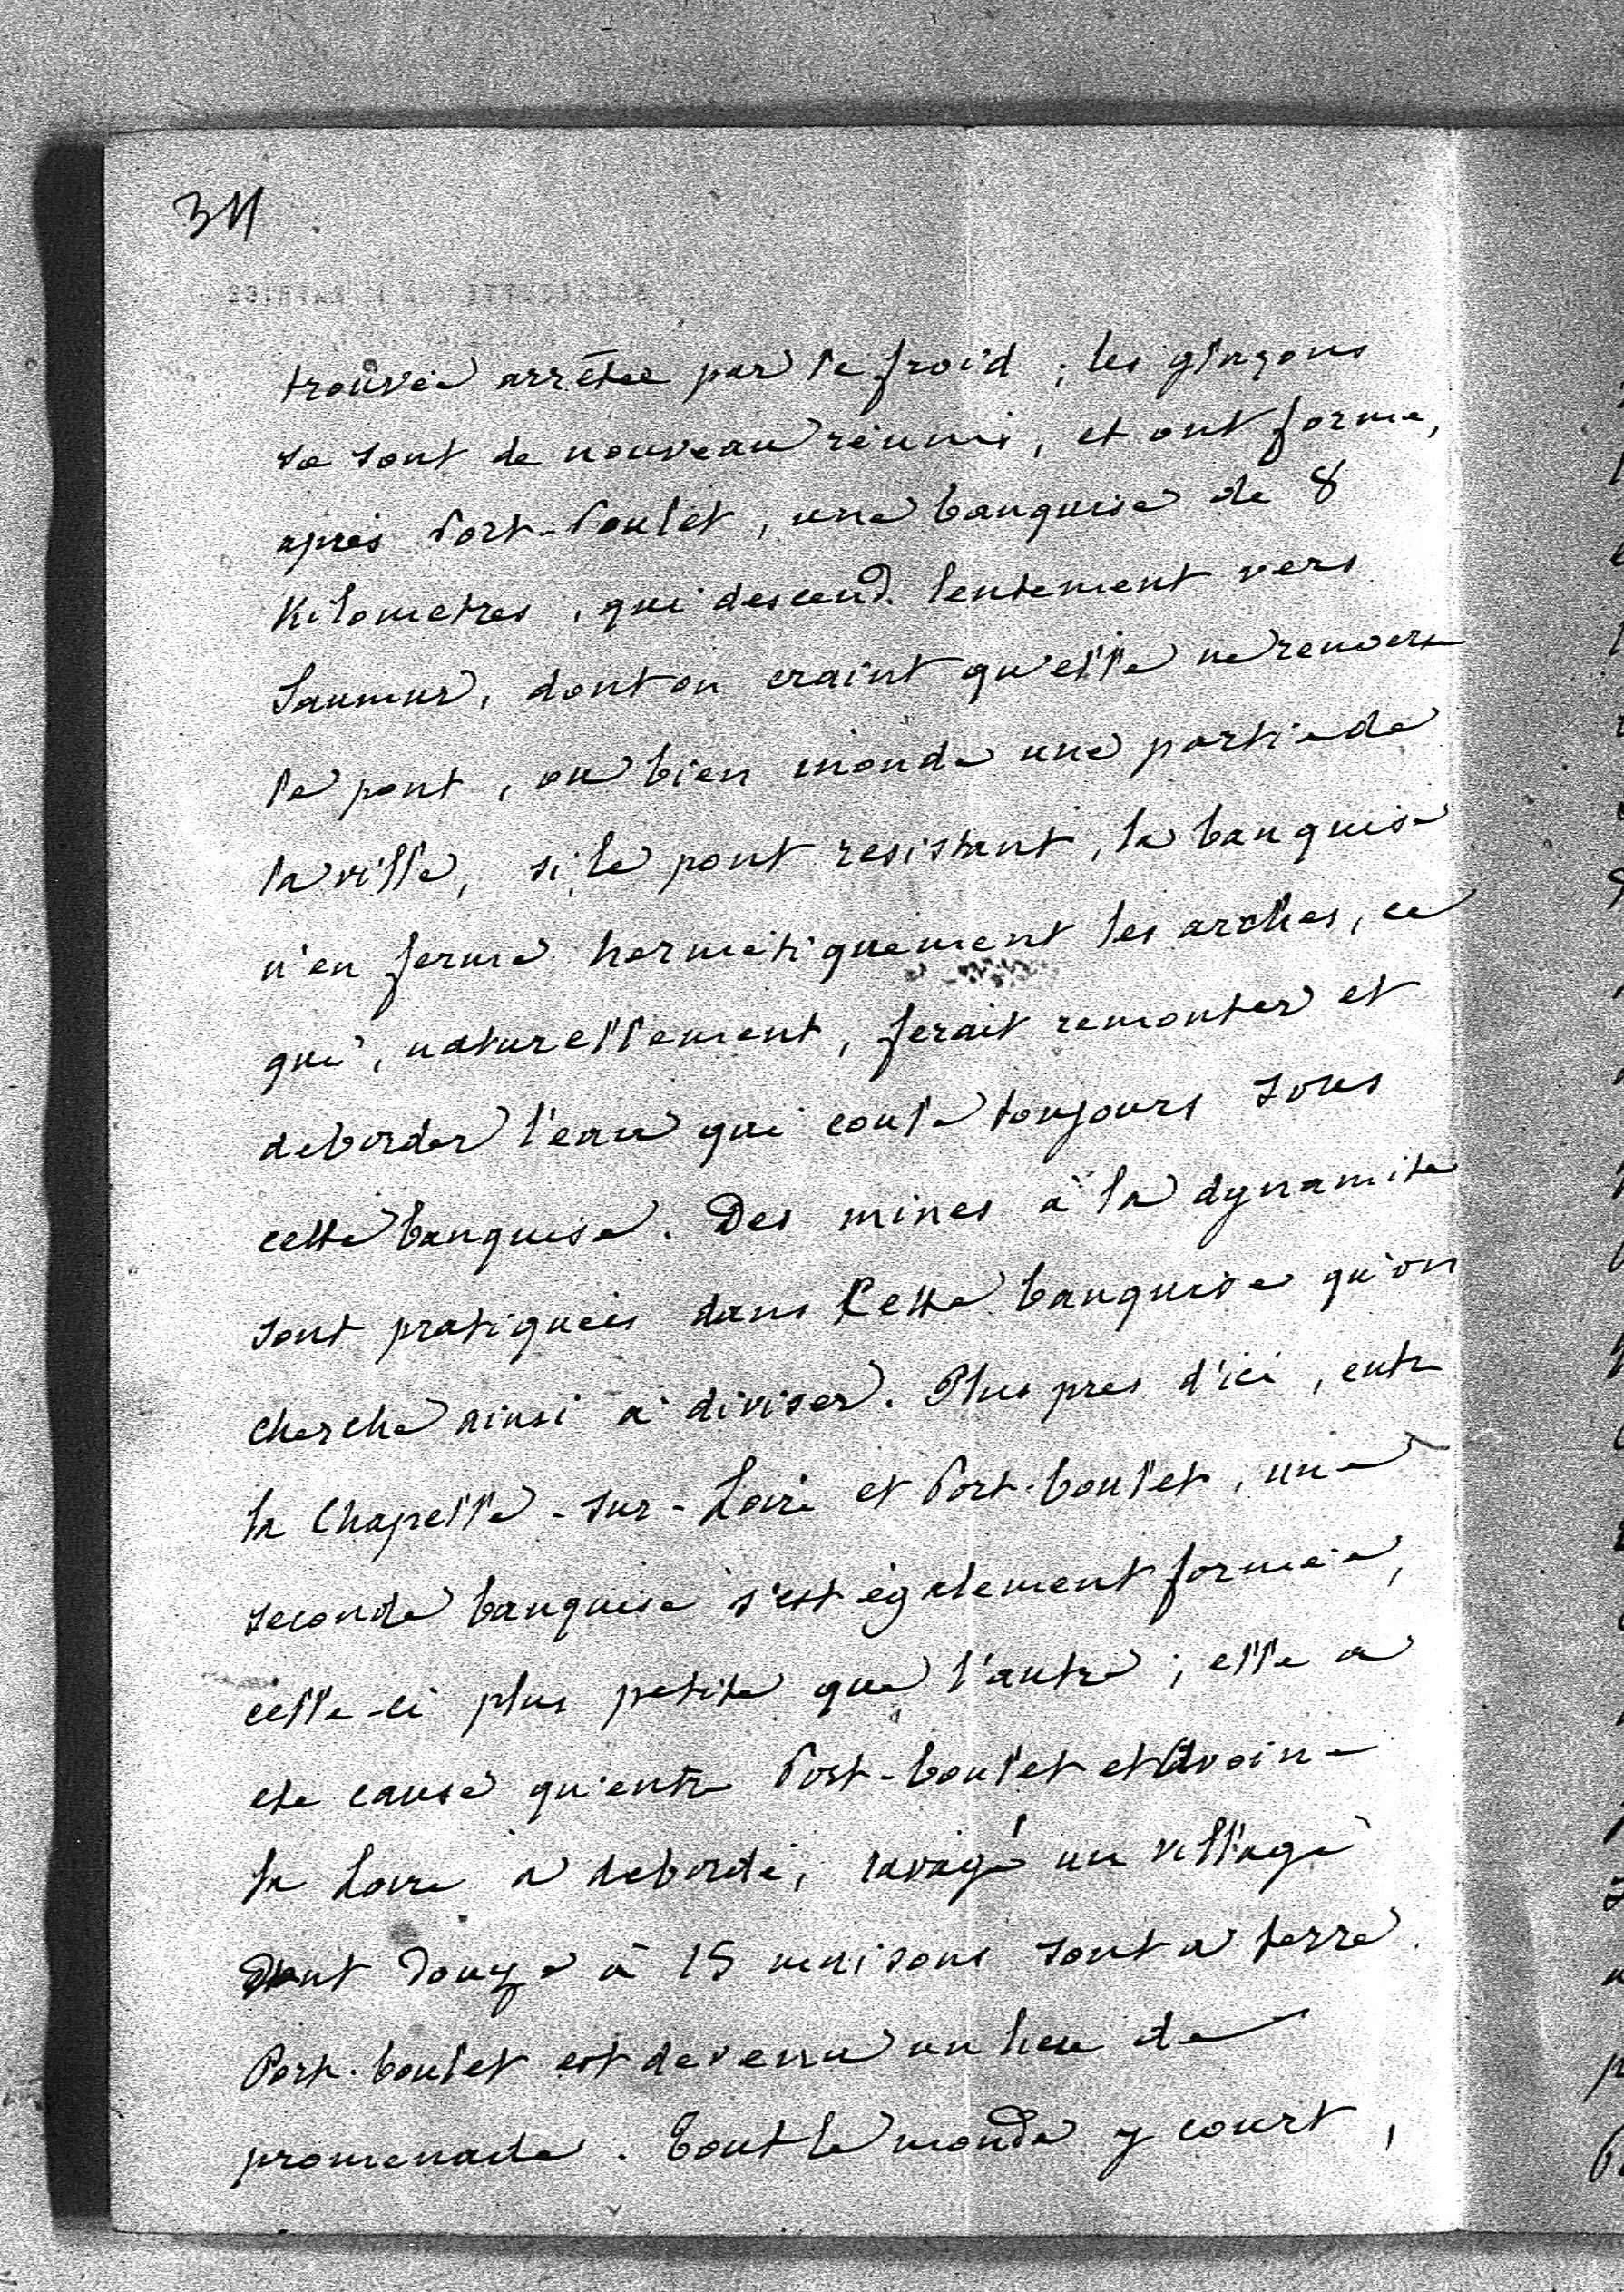 trouvée arrêtée par le froid ; les glaçons
se sont de nouveau réunis, et ont formé,
après Port-Boulet, une banquise de 8
Kilometres, qui descend lentement vers
Saumur, dont on craint qu'elle ne renverse
le pont, ou bien inonde une partie de
la ville, si, le pont resistant, la banquise
n'en ferme hermétiquement les arches, ce
qui, naturellement, ferait remonter et
deborder l'eau qui coule toujours sous
cette banquise. Des mines à la dynamite
sont pratiquées dans cette banquise qu'on
cherche ainsi à diviser. Plus pres d'ici, entre
la Chapelle-sur-Loire et Port-boulet, une
seconde banquise s'est également formée,
celle-ci plus petite que l'autre ; elle a
ete cause qu'entre Port-boulet et Avoine
la Loire a debordé, ravagé un village
dont douze à 15 maisons sont a terre.
Port-boulet est devenu un lieu de
promenade. Tout le monde y court,